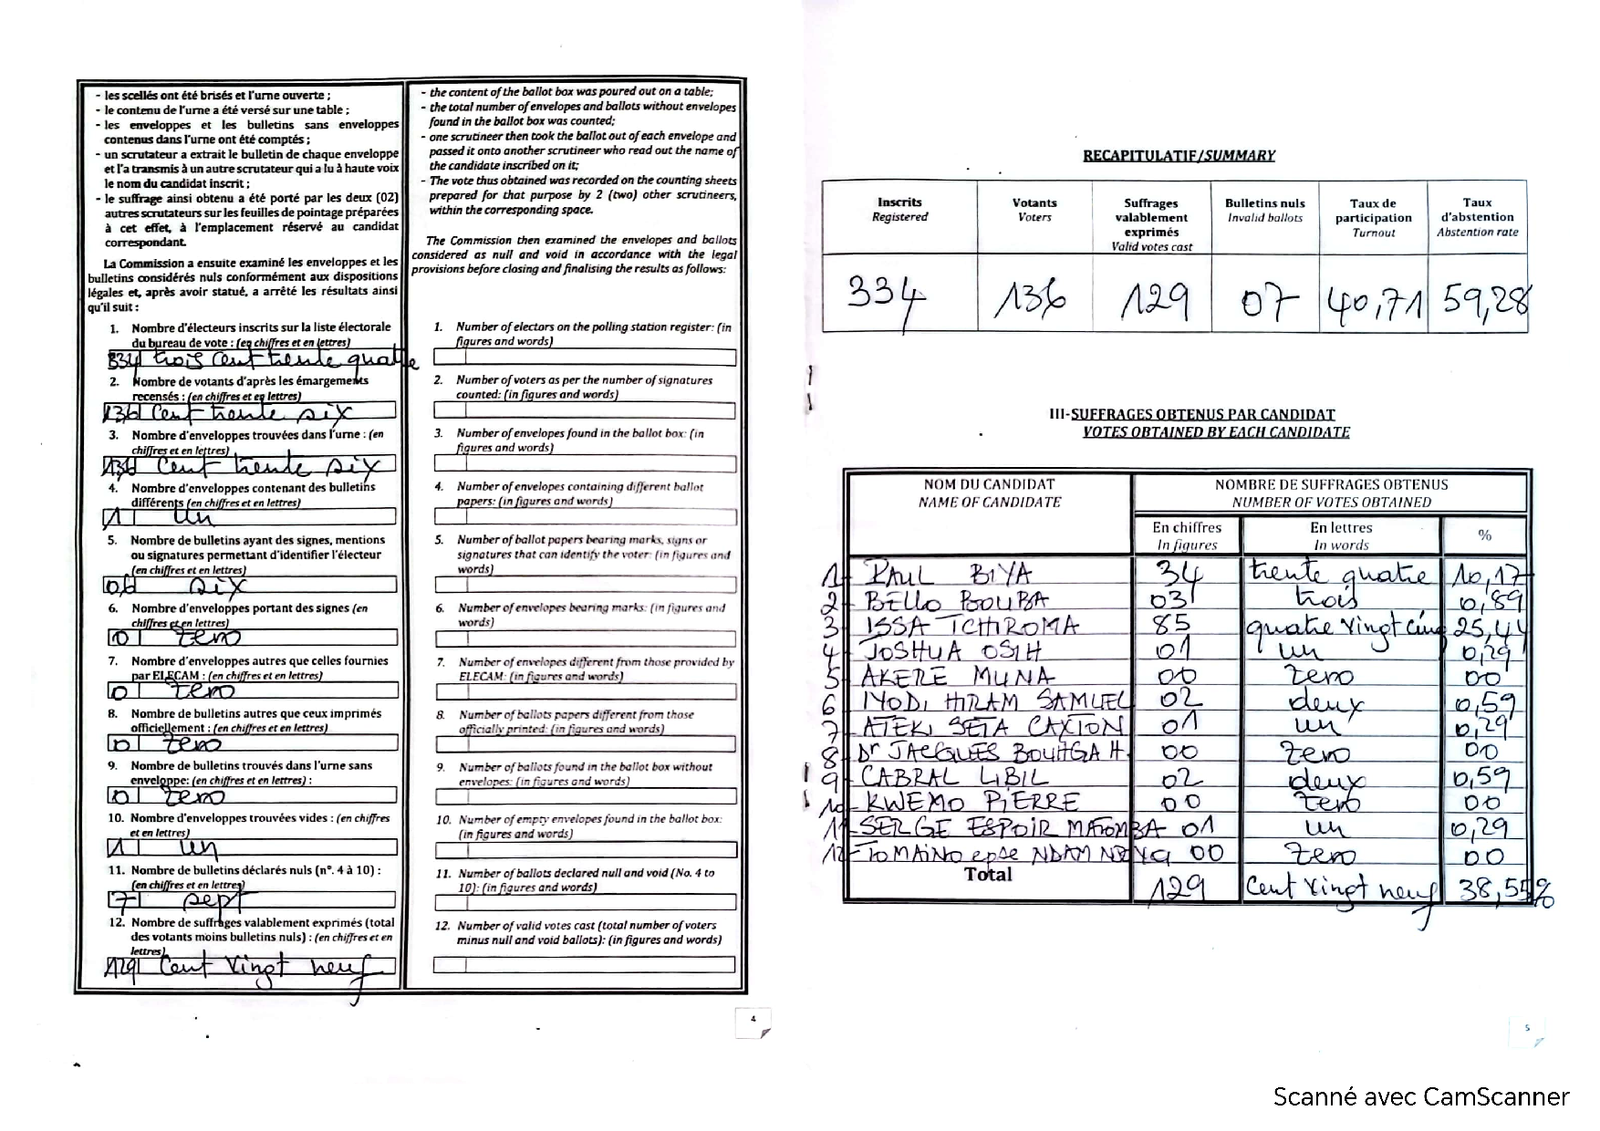 - les scellés ont été brisés et l'urne ouverte ;
- le contenu de l'urne a été versé sur une table ;
- les enveloppes et les bulletins sans enveloppes
contenus dans l'urne ont été comptés ;
- un scrutateur a extrait le bulletin de chaque enveloppe
et l'a transmis à un autre scrutateur qui a lu à haute voix
le nom du candidat inscrit ;
- le suffrage ainsi obtenu a été porté par les deux (02)
autres scrutateurs sur les feuilles de pointage préparées
à cet effet, à l'emplacement réservé au candidat
correspondant.
La Commission a ensuite examiné les enveloppes et les
bulletins considérés nuls conformément aux dispositions
légales et, après avoir statué, a arrêté les résultats ainsi
qu'il suit :
1. Nombre d'électeurs inscrits sur la liste électorale
du bureau de vote : (en chiffres et en lettres)
334 trois cent trente quatre
2. Nombre de votants d'après les émargements
recensés : (en chiffres et en lettres)
136 Cent trente six
3. Nombre d'enveloppes trouvées dans l'urne : (en
chiffres et en lettres)
136 Cent trente six
4. Nombre d'enveloppes contenant des bulletins
différents (en chiffres et en lettres)
1 un
5. Nombre de bulletins ayant des signes, mentions
ou signatures permettant d'identifier l'électeur
(en chiffres et en lettres)
06 six
6. Nombre d'enveloppes portant des signes (en
chiffres et en lettres)
0 zero
7. Nombre d'enveloppes autres que celles fournies
par ELECAM : (en chiffres et en lettres)
0 zero
8. Nombre de bulletins autres que ceux imprimés
officiellement : (en chiffres et en lettres)
0 zero
9. Nombre de bulletins trouvés dans l'urne sans
enveloppe: (en chiffres et en lettres) :
0 zero
10. Nombre d'enveloppes trouvées vides : (en chiffres
et en lettres)
1 un
11. Nombre de bulletins déclarés nuls (n°. 4 à 10) :
(en chiffres et en lettres)
7 sept
12. Nombre de suffrages valablement exprimés (total
des votants moins bulletins nuls) : (en chiffres et en
lettres)
129 Cent vingt neuf
- the content of the ballot box was poured out on a table;
- the total number of envelopes and ballots without envelopes
found in the ballot box was counted;
- one scrutineer then took the ballot out of each envelope and
passed it onto another scrutineer who read out the name of
the candidate inscribed on it;
- The vote thus obtained was recorded on the counting sheets
prepared for that purpose by 2 (two) other scrutineers,
within the corresponding space.
The Commission then examined the envelopes and ballots
considered as null and void in accordance with the legal
provisions before closing and finalising the results as follows:
1. Number of electors on the polling station register: (in
figures and words)
2. Number of voters as per the number of signatures
counted: (in figures and words)
3. Number of envelopes found in the ballot box: (in
figures and words)
4. Number of envelopes containing different ballot
papers: (in figures and words)
5. Number of ballot papers bearing marks, signs or
signatures that can identify the voter: (in figures and
words)
6. Number of envelopes bearing marks: (in figures and
words)
7. Number of envelopes different from those provided by
ELECAM: (in figures and words)
8. Number of ballots papers different from those
officially printed: (in figures and words)
9. Number of ballots found in the ballot box without
envelopes: (in figures and words)
10. Number of empty envelopes found in the ballot box:
(in figures and words)
11. Number of ballots declared null and void (No. 4 to
10): (in figures and words)
12. Number of valid votes cast (total number of voters
minus null and void ballots): (in figures and words)
4
RECAPITULATIF/SUMMARY
Inscrits
Registered
Votants
Voters
Suffrages
valablement
exprimés
Valid votes cast
Bulletins nuls
Invalid ballots
Taux de
participation
Turnout
Taux
d'abstention
Abstention rate
334 136 129 07 40,71 59,28
III-SUFFRAGES OBTENUS PAR CANDIDAT
VOTES OBTAINED BY EACH CANDIDATE
NOM DU CANDIDAT
NAME OF CANDIDATE
NOMBRE DE SUFFRAGES OBTENUS
NUMBER OF VOTES OBTAINED
En chiffres
In figures
En lettres
In words
%
1- PAUL BIYA 34 trente quatre 10,17
2- BELLO BOUBA 03 trois 0,89
3- ISSA TCHIROMA 85 quatre vingt cinq 25,44
4- JOSHUA OSIH 01 un 0,29
5- AKERE MUNA 00 zero 00
6- IYODI HIRAM SAMUEL 02 deux 0,59
7- ATEKI SETA CAXTON 01 un 0,29
8- Dr JACQUES BOUHGA H. 00 zero 00
9- CABRAL LIBIL 02 deux 0,59
10- KWEMO PIERRE 00 zero 00
11- SERGE ESPOIR MATOMBA 01 un 0,29
12- TOMAINO epse NDAM NJOYA 00 zero 00
Total 129 Cent vingt neuf 38,55%
5
Scanné avec CamScanner